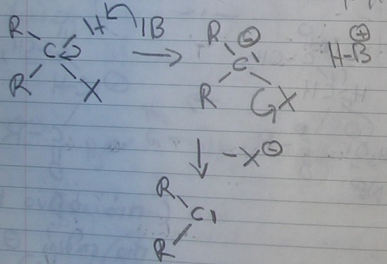 R H IB R ⊖ ⊕
C C H-B
R X R X
-X⊖
R
C
R